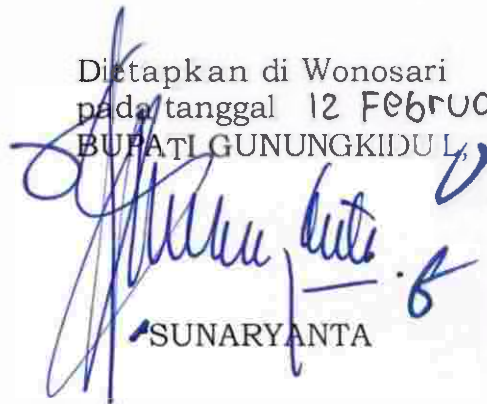 Ditetapkan di Wonosari
pada tanggal 12 Februa
BUPATI GUNUNGKIDUL,
SUNARYANTA